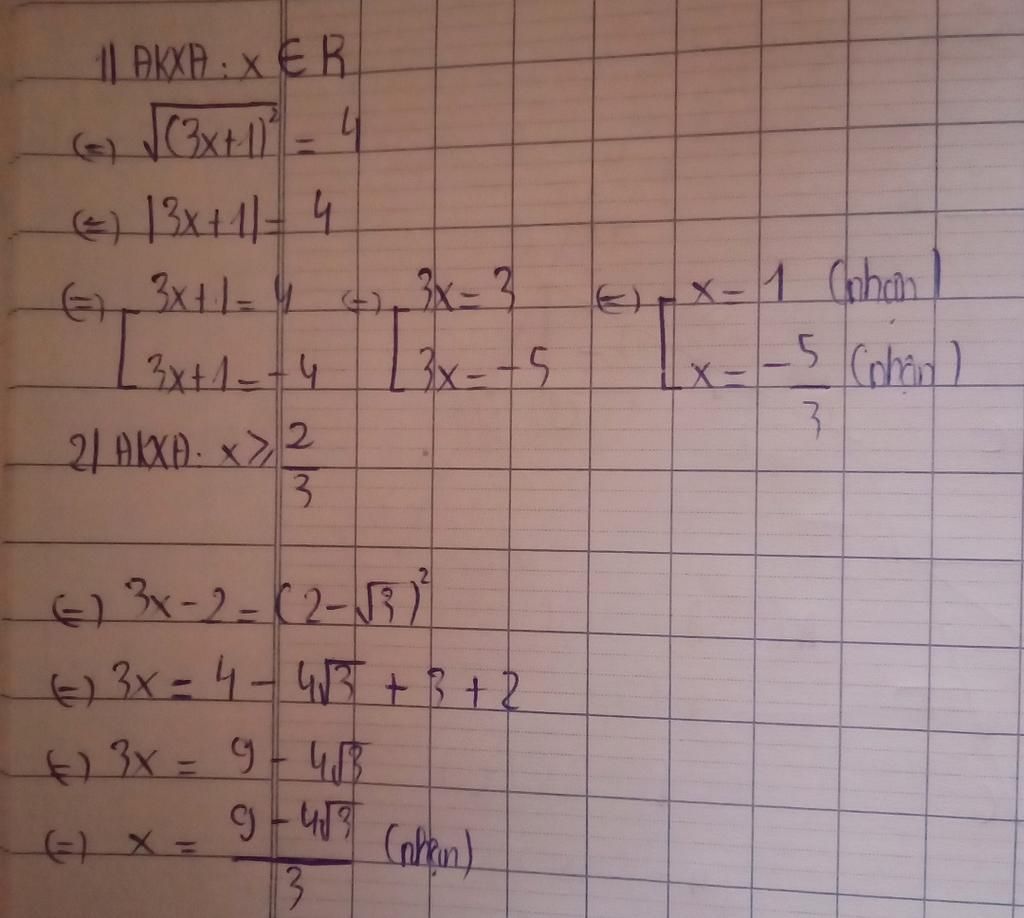 1) ĐKXĐ: x ∈ R
(=) √(3x+1)² = 4
(=) |3x+1| = 4
(=) [ 3x+1 = 4 (=) [ 3x = 3 (=) [ x = 1 (nhận)
3x+1 = -4 3x = -5 x = -5/3 (nhận)
2) ĐKXĐ: x ≥ 2/3
(=) 3x-2 = (2-√3)²
(=) 3x = 4 - 4√3 + 3 + 2
(=) 3x = 9 - 4√3
(=) x = (9 - 4√3)/3 (nhận)